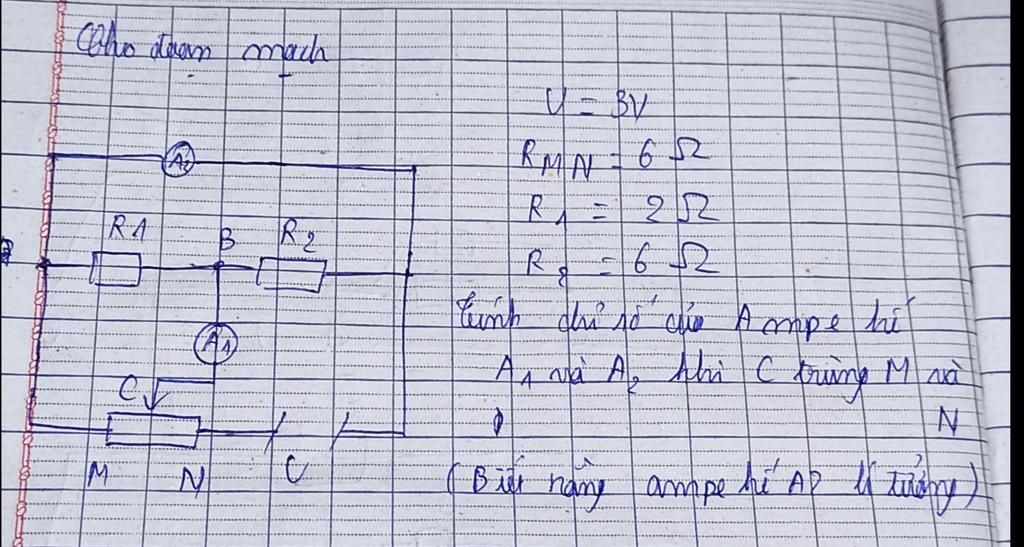 Cho đoạn mạch
U = 3V
R MN = 6 Ω
R1 = 2 Ω
R2 = 6 Ω
Tính chỉ số của Ampe kế
A1 và A2 khi C trùng M và
N
(Biết rằng ampe kế lí tưởng)
A2
R1
B
R2
A1
C
M
N
U